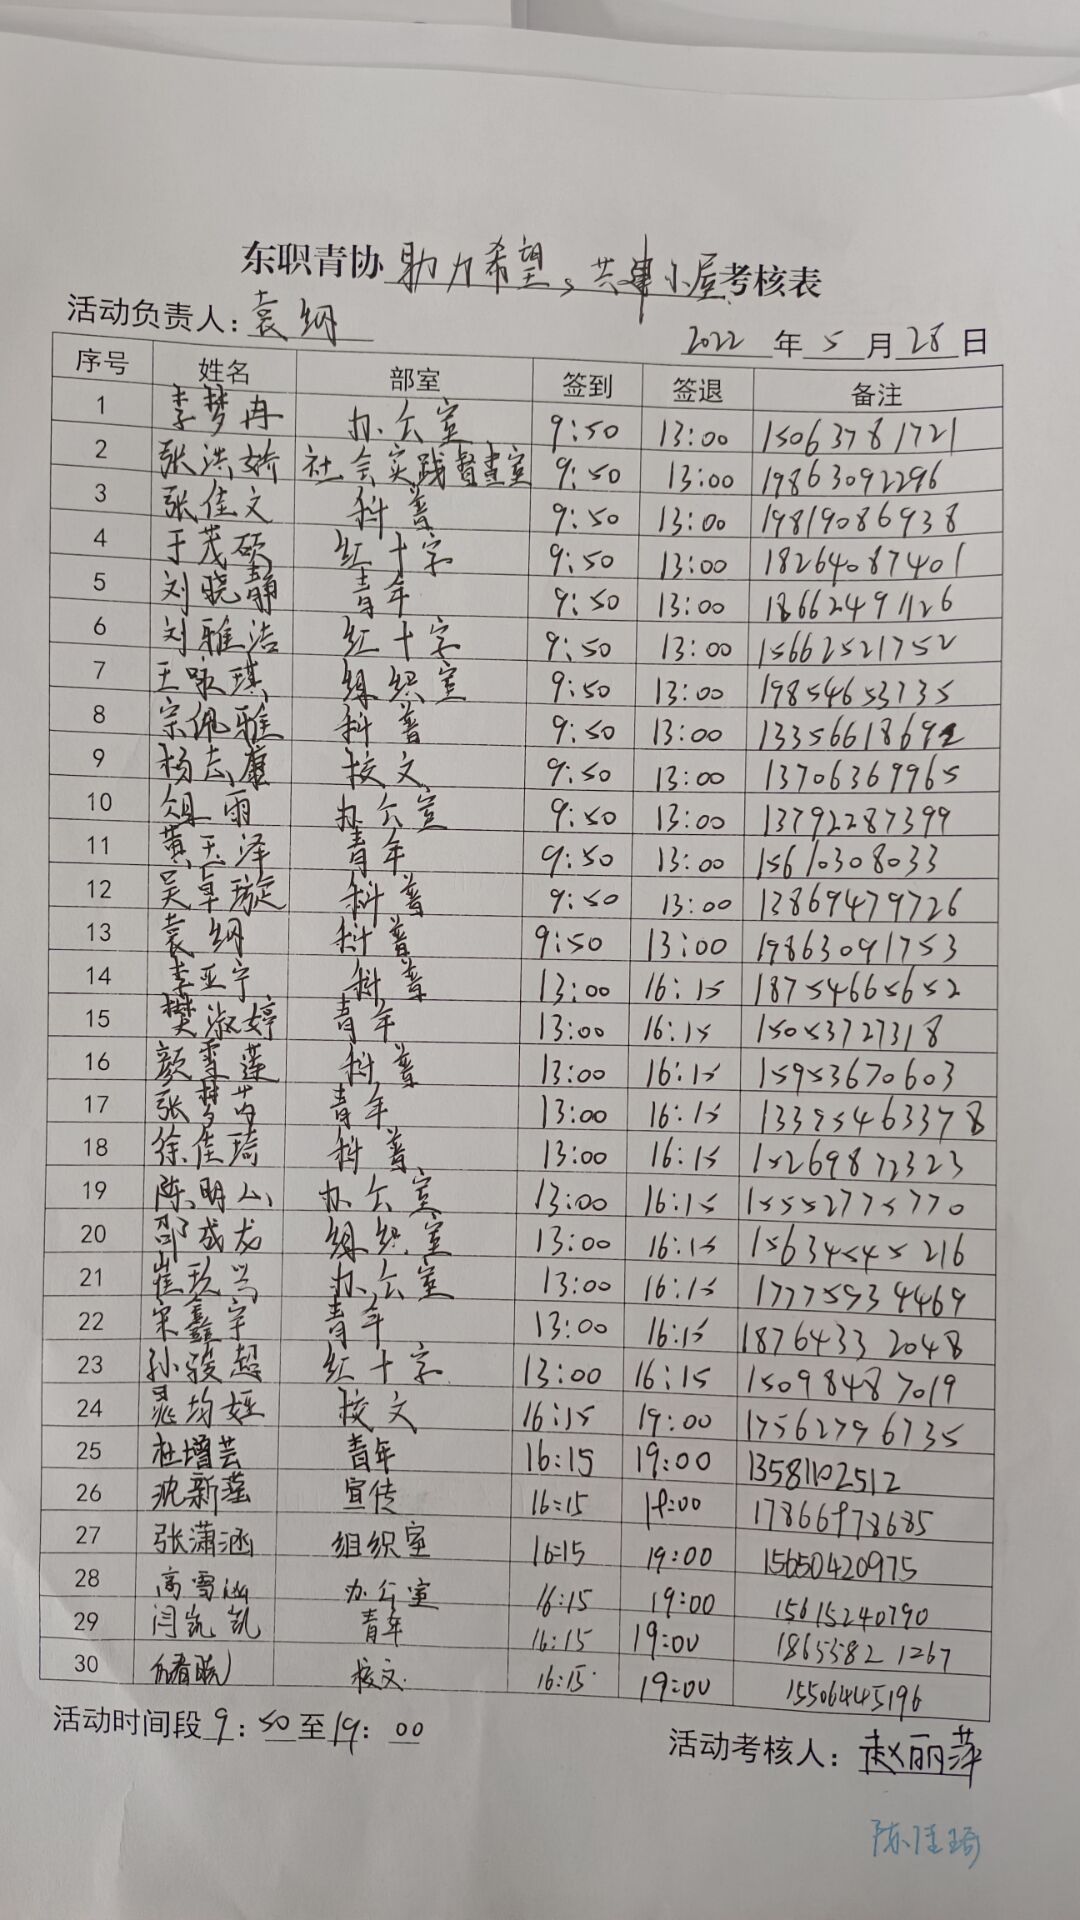 东职青协助力希望、共建小屋考核表
活动负责人：袁纲
2022年5月28日
序号 姓名 部室 签到 签退 备注
1 李梦冉 办公室 9:50 13:00 15063781721
2 张洪娇 社会实践督查室 9:50 13:00 19863092296
3 张佳文 科普 9:50 13:00 19819086938
4 于茂硕 红十字 9:50 13:00 18264087401
5 刘晓静 青年 9:50 13:00 18662491126
6 刘雅洁 红十字 9:50 13:00 15662521752
7 王咏琪 组织室 9:50 13:00 19854653735
8 宗佩雅 科普 9:50 13:00 13356618692
9 杨志康 校文 9:50 13:00 13706369965
10 俎雨 办公室 9:50 13:00 13792287399
11 黄玉泽 青年 9:50 13:00 15610308033
12 吴卓璇 科普 9:50 13:00 13869479726
13 袁纲 科普 9:50 13:00 19863091753
14 李亚宁 科普 13:00 16:15 18754665652
15 樊淑婷 青年 13:00 16:15 15053727318
16 颜雪莲 科普 13:00 16:15 15953670603
17 张梦芮 青年 13:00 16:15 13395463378
18 徐佳琦 科普 13:00 16:15 15269872323
19 陈明心 办公室 13:00 16:15 15552775770
20 邵成龙 组织室 13:00 16:15 15634545216
21 崔玖兴 办公室 13:00 16:15 17775934469
22 宋鑫宇 青年 13:00 16:15 18764332048
23 孙骏超 红十字 13:00 16:15 15098487019
24 晁均娅 校文 16:15 19:00 17562796735
25 杜增芸 青年 16:15 19:00 13581102512
26 沈新蕴 宣传 16:15 19:00 17866978685
27 张潇涵 组织室 16:15 19:00 15650420975
28 高雪涵 办公室 16:15 19:00 15615240790
29 闫凯凯 青年 16:15 19:00 18653821267
30 校文 16:15 19:00 15506445196
活动时间段9:50至19:00
活动考核人：赵丽萍
陈佳琦